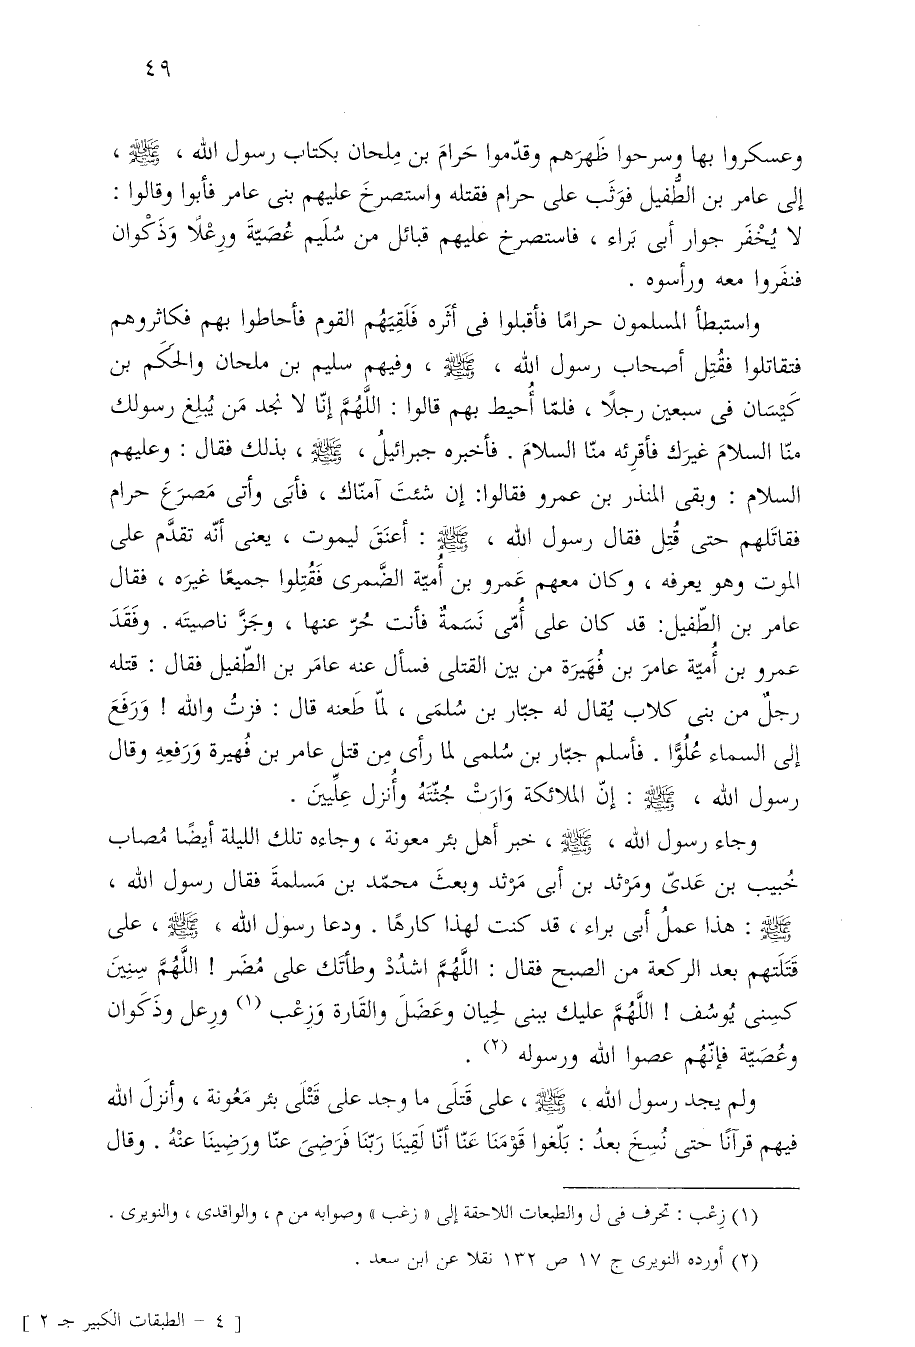 ٤٩
وعسكروا بها وسرحوا ظَهرَهم وقدّموا حَرامَ بن مِلحان بكتاب رسول الله ، ﷺ ،
إلى عامر بن الطُّفيل فوَثَب على حرام فقتله واستصرخَ عليهم بنى عامر فأبوا وقالوا :
لا يُخْفَر جوار أبى بَراء ، فاستصرخ عليهم قبائل من سُلَيم عُصَيّةَ ورِعْلًا وَذَكْوان
فنفَروا معه ورأسوه .
واستبطأ المسلمون حرامًا فأقبلوا فى أثَره فَلَقِيَهُم القوم فأحاطوا بهم فكاثروهم
فتقاتلوا فقُتِل أصحاب رسول الله ، ﷺ ، وفيهم سليم بن ملحان والحَكَم بن
كَيْسَان فى سبعين رجلًا ، فلمّا أُحيط بهم قالوا : اللَّهُمَّ إنّا لا نجد مَن يُبلِغ رسولك
منّا السلامَ غيرَك فأقرِئه منّا السلامَ . فأخبره جبرائيلُ ، ﷺ ، بذلك فقال : وعليهم
السلام : وبقى المنذر بن عمرو فقالوا: إن شئتَ آمنّاك ، فأبَى وأتى مَصرَعَ حرام
فقاتَلهم حتى قُتِل فقال رسول الله ، ﷺ : أعنَقَ ليموت ، يعنى أنّه تقدَّم على
الموت وهو يعرفه ، وكان معهم عَمرو بن أُميّة الضَّمرى فَقُتِلوا جميعًا غيرَه ، فقال
عامر بن الطّفيل: قد كان على أُمّى نَسَمةٌ فأنت حُرّ عنها ، وجَزَّ ناصيتَه . وفَقَدَ
عمرو بن أُميّة عامرَ بن فُهَيرَة من بين القتلى فسأل عنه عامَر بن الطّفيل فقال : قتله
رجلٌ من بنى كلاب يُقال له جبّار بن سُلمَى ، لمّا طَعنه قال : فزتُ والله ! وَرَفَعَ
إلى السماء عُلُوًّا . فأسلم جبّار بن سُلمى لما رأى مِن قتل عامر بن فُهيرة وَرَفعِهِ وقال
رسول الله ، ﷺ : إنّ الملائكة وَارَتْ جُثّتَهُ وأُنزل عِلِّيينَ .
وجاء رسول الله ، ﷺ ، خبر أهل بئر معونة ، وجاءه تلك الليلة أيضًا مُصاب
خُبيب بن عَدىّ ومَرْثد بن أبى مَرْثد وبعثَ محمّد بن مَسلمةَ فقال رسول الله ،
ﷺ : هذا عملُ أبى براء ، قد كنت لهذا كارهًا . ودعا رسول الله ، ﷺ ، على
قَتَلَتهم بعد الركعة من الصبح فقال : اللَّهُمَّ اشدُدْ وطأتَك على مُضَر ! اللَّهُمَّ سِنِينَ
كسِنى يُوسُف ! اللَّهُمَّ عليك ببنى لحيان وعَضَلَ والقَارة وَزِعْب (١) ورِعل وذَكَوان
وعُصَيّة فإنّهُم عصوا الله ورسوله (٢) .
ولم يجد رسول الله ، ﷺ ، على قَتَلَى ما وجد على قَتْلَى بئر مَعُونة ، وأنزلَ الله
فيهم قرآنًا حتى نُسِخَ بعدُ : بَلّغوا قَوْمَنَا عَنّا أنّا لَقِينَا رَبّنَا فَرَضِىَ عنّا ورَضِينَا عنْهُ . وقال
(١) زِعْب : تحرف فى ل والطبعات اللاحقة إلى « زغب » وصوابه من م ، والواقدى ، والنويرى .
(٢) أورده النويرى ج ١٧ ص ١٣٢ نقلا عن ابن سعد .
[ ٤ - الطبقات الكبير جـ ٢ ]